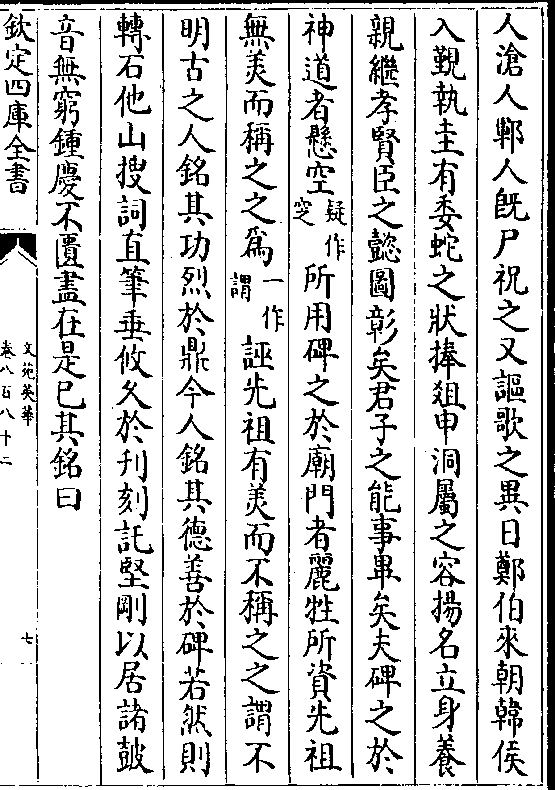 人滄人鄆人旣尸祝之又謳歌之異日鄭伯來朝韓侯
入覲執圭有委蛇之狀捧爼申洞屬之容揚名立身養
親繼孝賢臣之懿圖彰矣君子之能事畢矣夫碑之於
神道者懸空疑作窆所用碑之於廟門者麗牲所資先祖
無羙而稱之之爲一作謂誣先祖有羙而不稱之之謂不
明古之人銘其功烈於鼎今人銘其德善於碑若然則
轉石他山搜詞直筆垂攸久於刋刻託堅剛以居諸皷
音無窮鍾慶不匱盡在是已其銘曰
欽定四庫全書
文苑英華
卷八百八十二
七